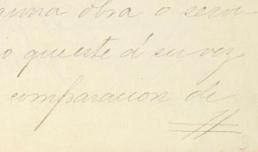 guna obra o servi
o que este á su vez
comparacion de